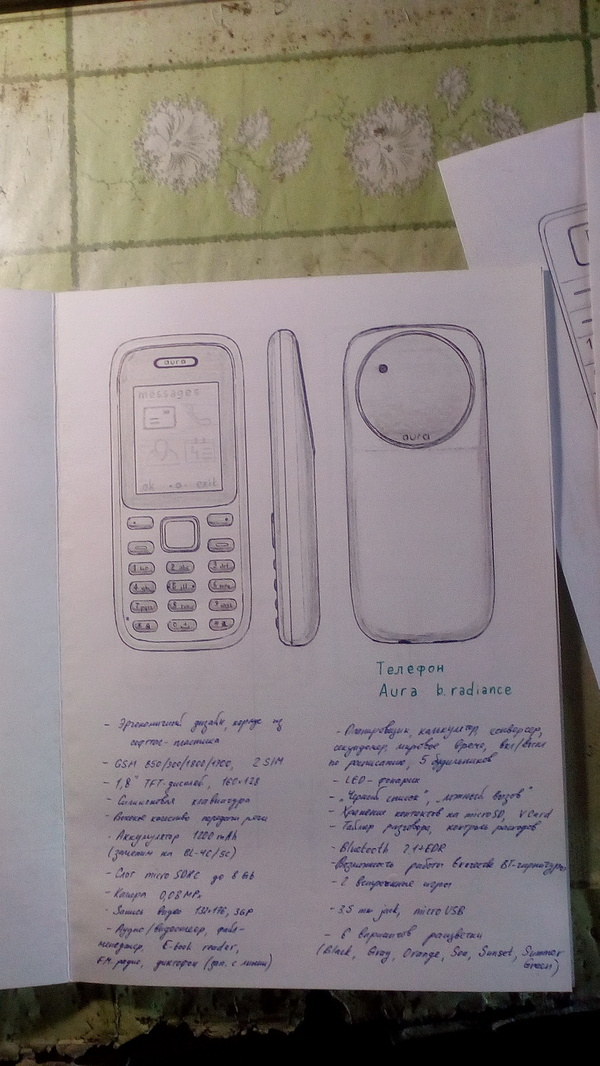 aura
messages
ok exit
aura
Телефон
Aura b. radiance
- Эргономичный дизайн, корпус из
софттач-пластика
- GSM 850/900/1800/1900, 2 SIM
- 1,8" TFT-дисплей, 160×128
- Силиконовая клавиатура
- Высокое качество передачи речи
- Аккумулятор 1200 mAh
(заменим на BL-4C/5C)
- Слот micro SDHC до 8 Gb
- Камера 0,08 MPx
- Запись видео 3GP
- Аудио/видеоплеер, файл-
менеджер, E-book reader,
FM-радио, диктофон (зап. с линии)
- Планировщик, калькулятор, конвертер,
секундомер, мировое время, вкл/выкл
по расписанию, 5 будильников
- LED-фонарик
- "Черный список", "ложный вызов"
- Хранение контактов на microSD, VCard
- Таймер разговора, контроль расходов
- Bluetooth 2.1+EDR
- Возможность работы в качестве BT-гарнитуры
- 2 встроенные игры
- 3.5 mm jack, micro USB
- 6 вариантов расцветки
(Black, Gray, Orange, Sea, Sunset, Summer
Green)